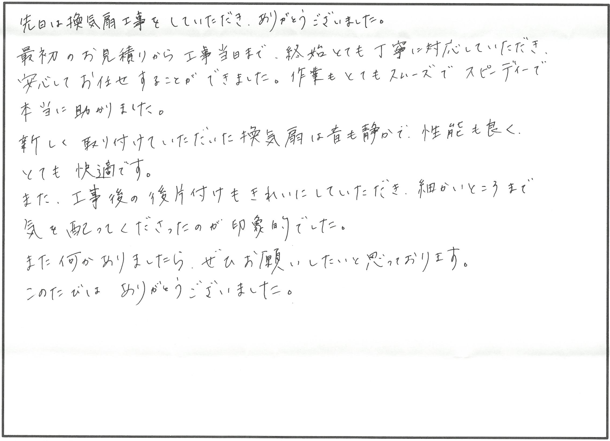 先日は換気扇工事をしていただき、ありがとうございました。
最初のお見積りから工事当日まで、終始とても丁寧に対応していただき、
安心してお任せすることができました。作業もとてもスムーズでスピーディーで
本当に助かりました。
新しく取り付けていただいた換気扇は音も静かで、性能も良く、
とても快適です。
また、工事後の後片付けもきれいにしていただき、細かいところまで
気を配ってくださったのが印象的でした。
また何かありましたら、ぜひお願いしたいと思っております。
このたびは ありがとうございました。